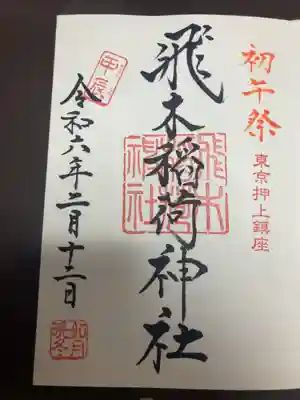 初午祭
東京押上鎮座
飛木稲荷神社
甲辰
令和六年二月十二日